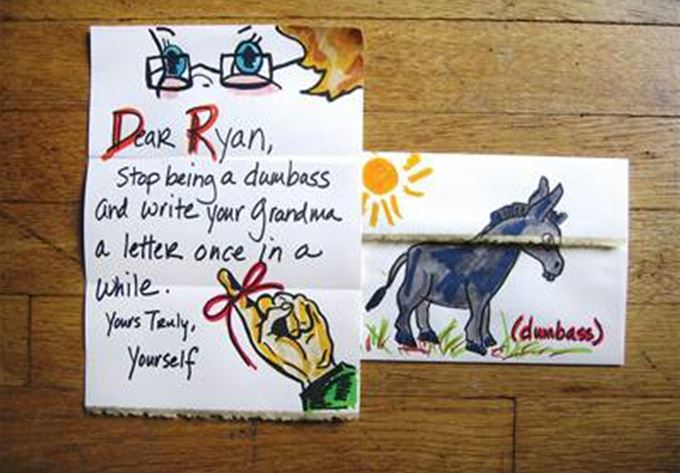 Dear Ryan,
Stop being a dumbass
and write your Grandma
a letter once in a
while.
Yours Truly,
Yourself
(dumbass)